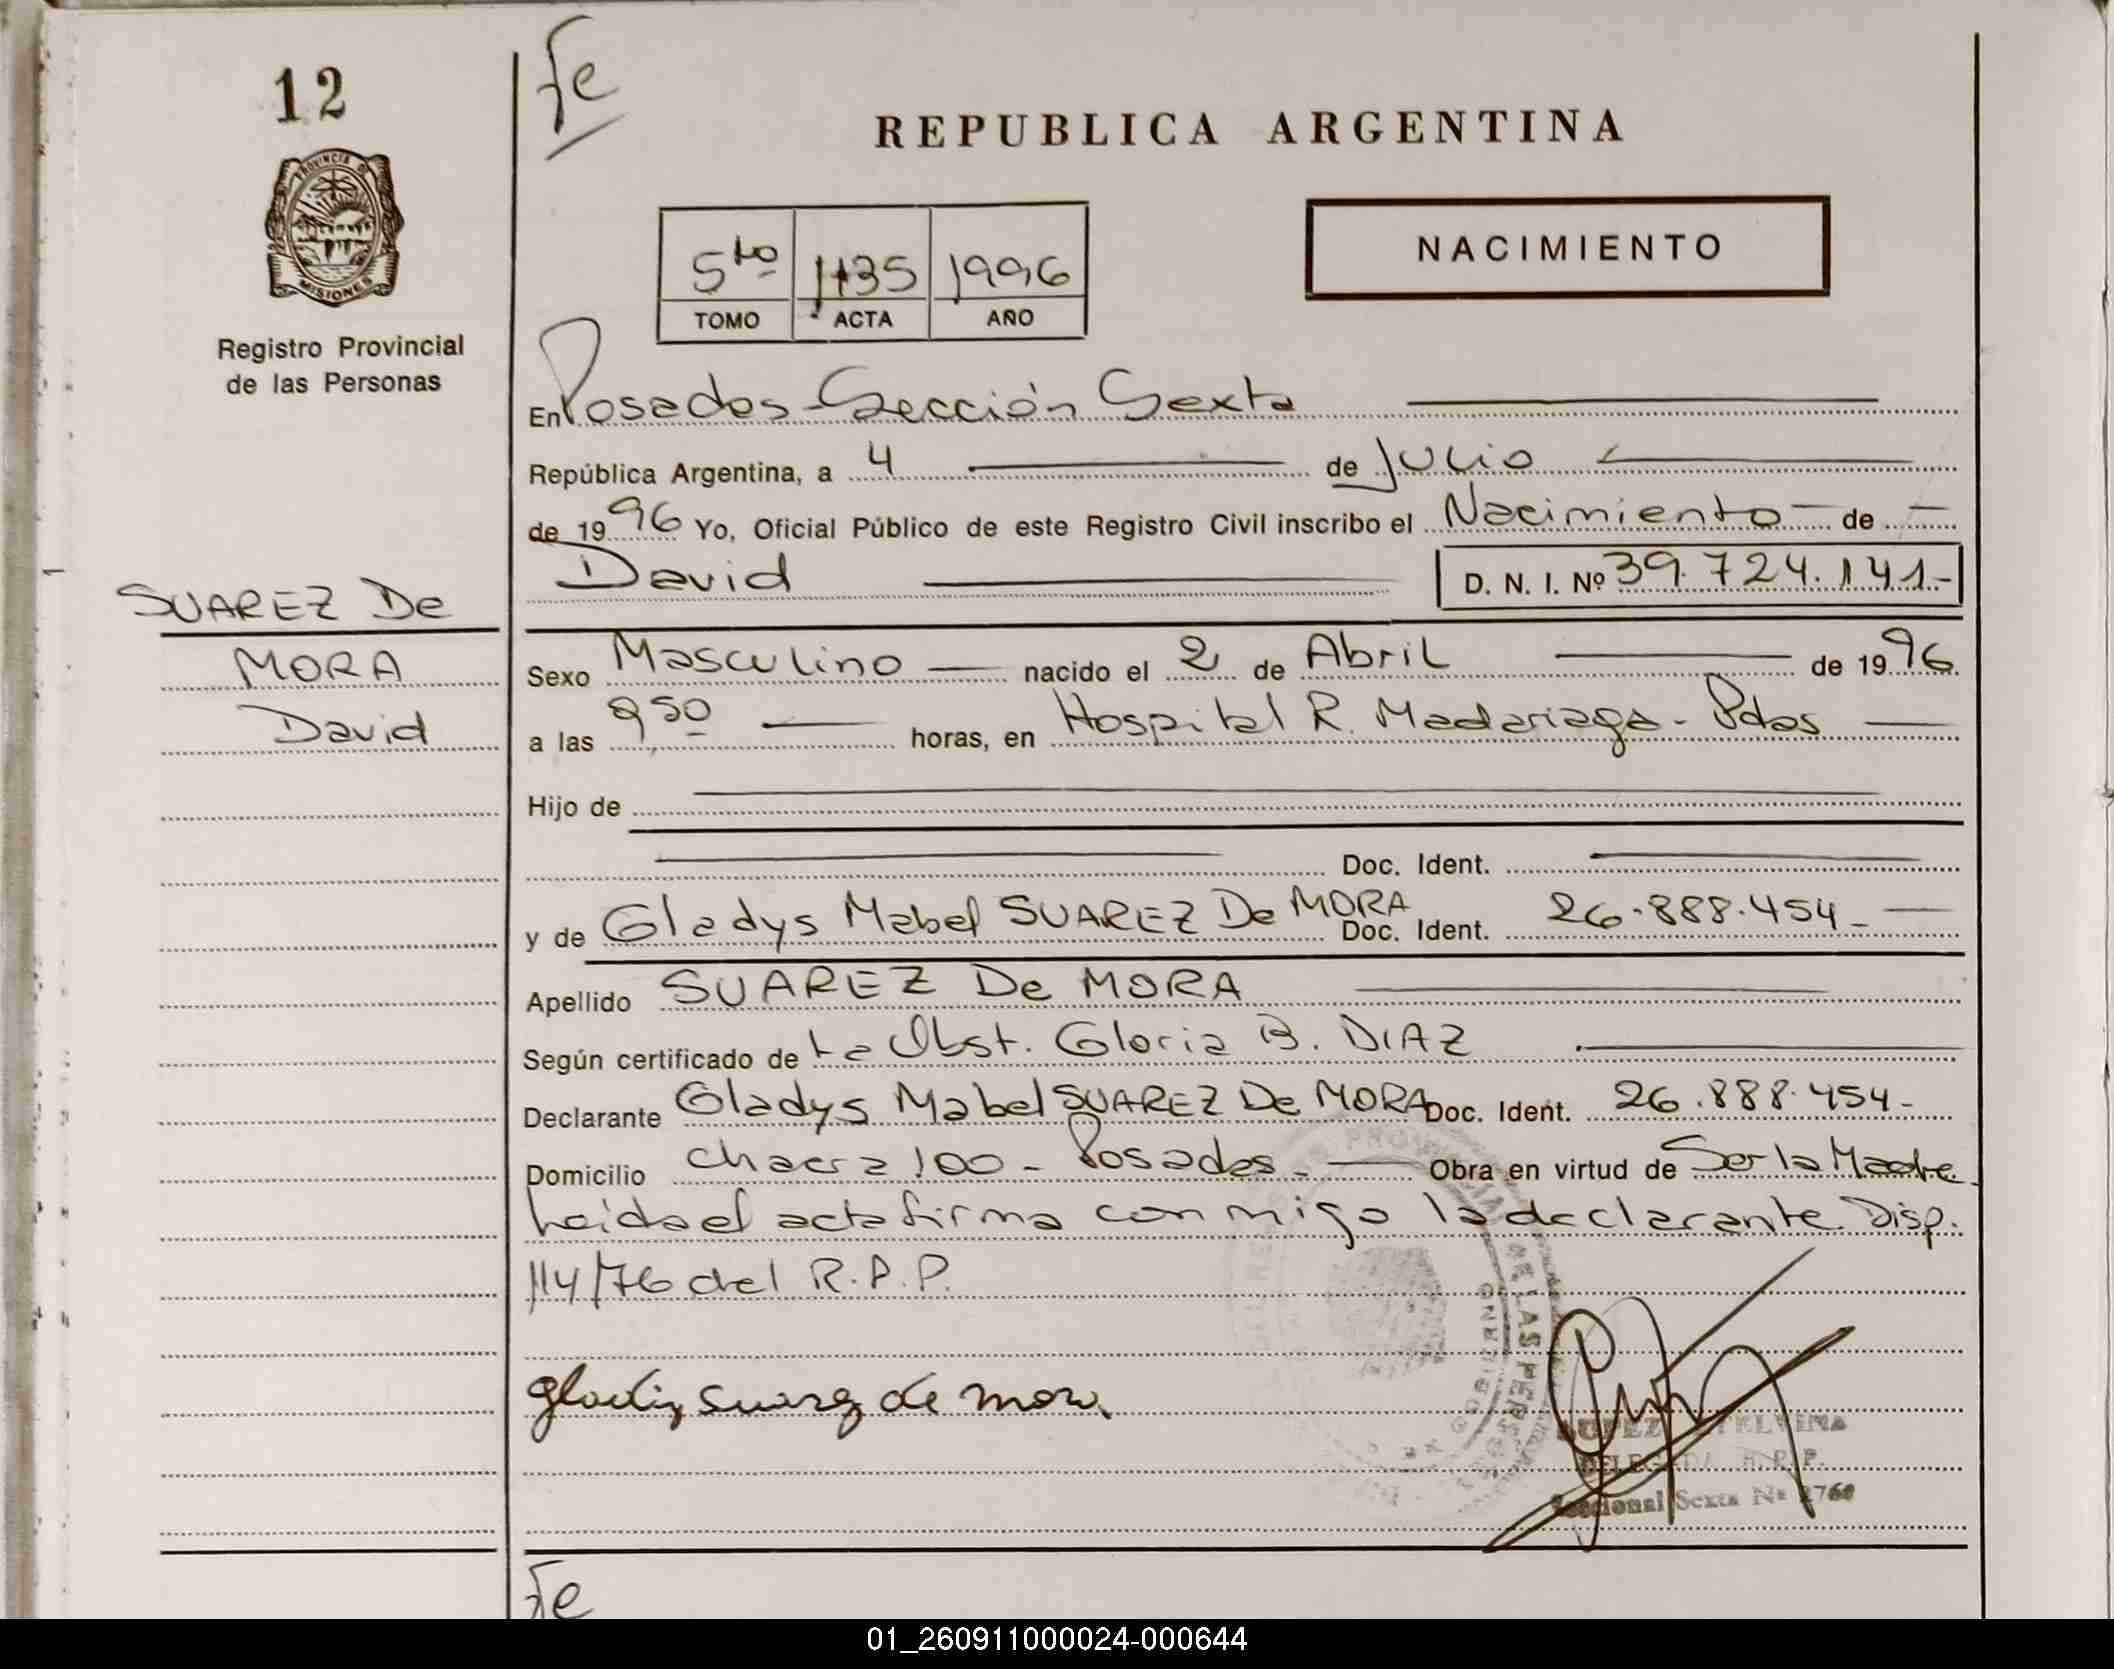 12
Fe
REPUBLICA ARGENTINA
PROVINCIA DE MISIONES
Registro Provincial
de las Personas
NACIMIENTO
5to 1135 1996
TOMO ACTA AÑO
En Posadas - Sección Sexta
República Argentina, a 4 de Julio
de 1996 Yo, Oficial Público de este Registro Civil inscribo el Nacimiento de
David D. N. I. Nº 39.724.141.-
SUAREZ De
MORA
David
Sexo Masculino nacido el 2 de Abril de 1996.
a las 950 horas, en Hospital R. Madariaga - Pdas
Hijo de
Doc. Ident.
y de Gladys Mabel SUAREZ De MORA Doc. Ident. 26.888.454-
Apellido SUAREZ De MORA
Según certificado de La Obst. Gloria B. DIAZ
Declarante Gladys Mabel SUAREZ De MORA Doc. Ident. 26.888.454-
Domicilio Chacra 100 - Posadas - Obra en virtud de Ser la Madre.
Leida el acta firma conmigo la declarante. Disp.
114/76 del R.P.P.
Suarez de Mora
DE LAS PERSONAS
Seccional Sexta Nº 2760
Fe
01_260911000024-000644